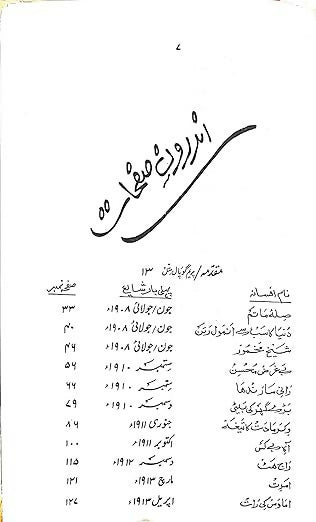 ۷
اندرونِ صفحات
مقدمہ/ پریم گوپال متل ۱۳
نام افسانہ پہلی بار شایع صفحہ نمبر
صلۂ ماتم جون/جولائی ۱۹۰۸ء ۳۳
دنیا کا سب سے انمول رتن جون/جولائی ۱۹۰۸ء ۴۰
شیخ مخمور جون/جولائی ۱۹۰۸ء ۴۶
بے غرض محسن ستمبر ۱۹۱۰ء ۵۹
رانی سارندھا ستمبر ۱۹۱۰ء ۶۶
بڑے گھر کی بیٹی دسمبر ۱۹۱۰ء ۷۹
وکرمادت کا تیغہ جنوری ۱۹۱۱ء ۸۶
آہِ بے کس اکتوبر ۱۹۱۱ء ۱۰۰
راج ہٹ دسمبر ۱۹۱۲ء ۱۱۵
امرت مارچ ۱۹۱۳ء ۱۲۱
اماوس کی رات اپریل ۱۹۱۳ء ۱۲۷